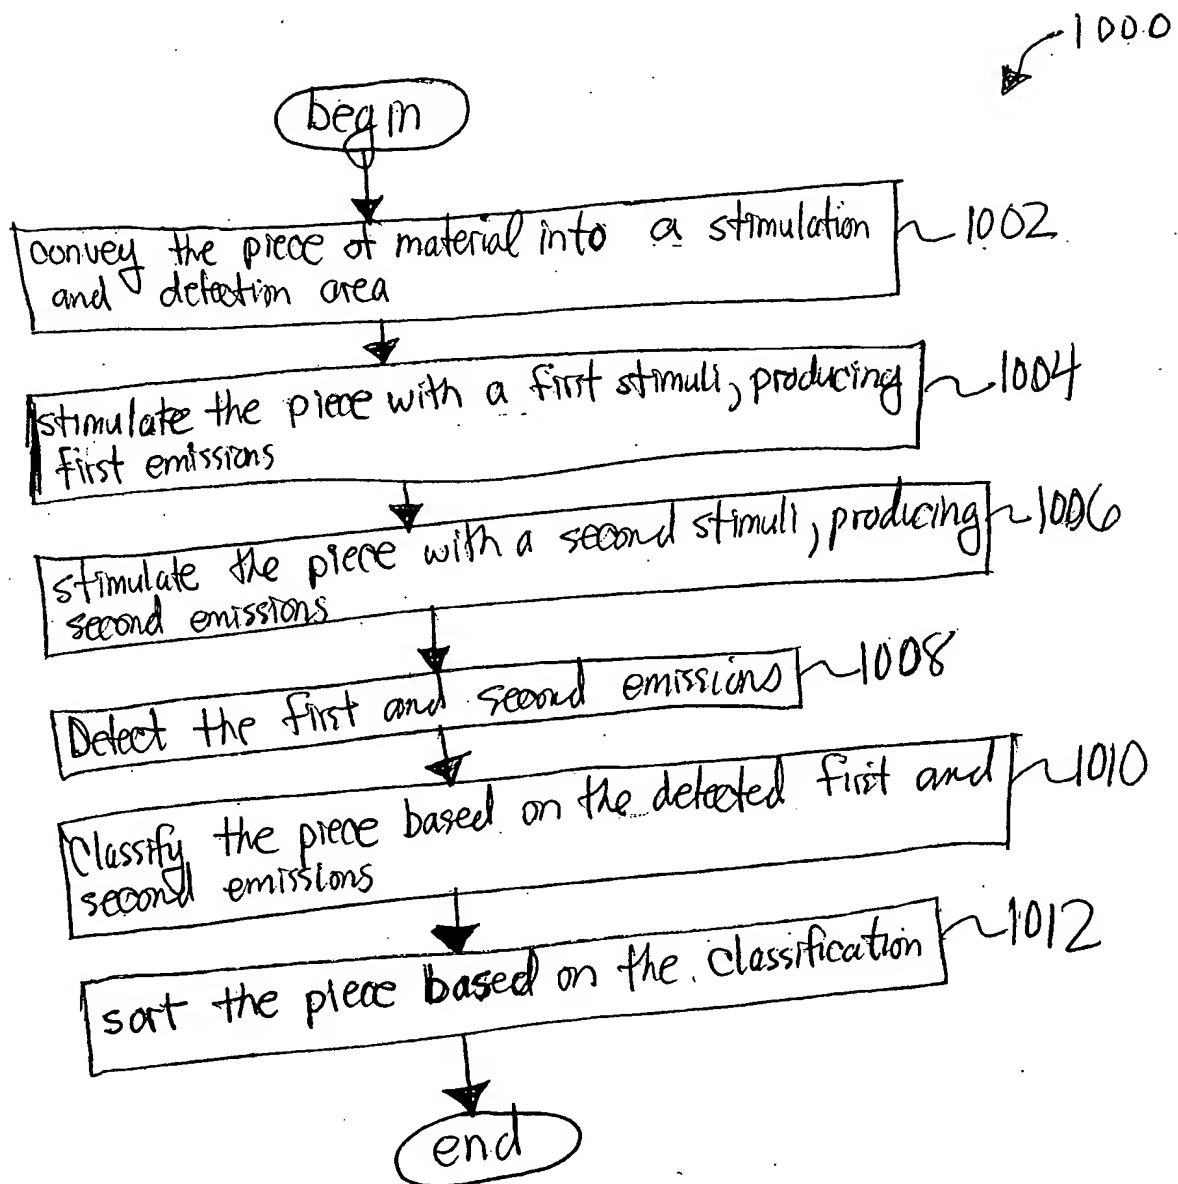 1000
begin
convey the piece of material into a stimulation
and detection area
1002
stimulate the piece with a first stimuli, producing
first emissions
1004
stimulate the piece with a second stimuli, producing
second emissions
1006
Detect the first and second emissions
1008
Classify the piece based on the detected first and
second emissions
1010
sort the piece based on the classification
1012
end